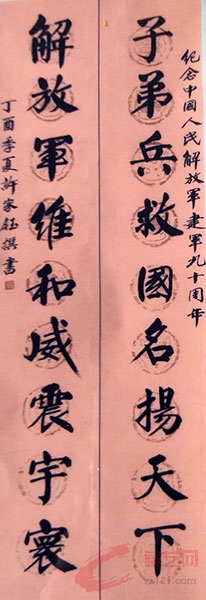 纪念中国人民解放军建军九十周年
子弟兵救國名揚天下
解放軍維和威震宇寰
丁酉季夏許家鈺撰書